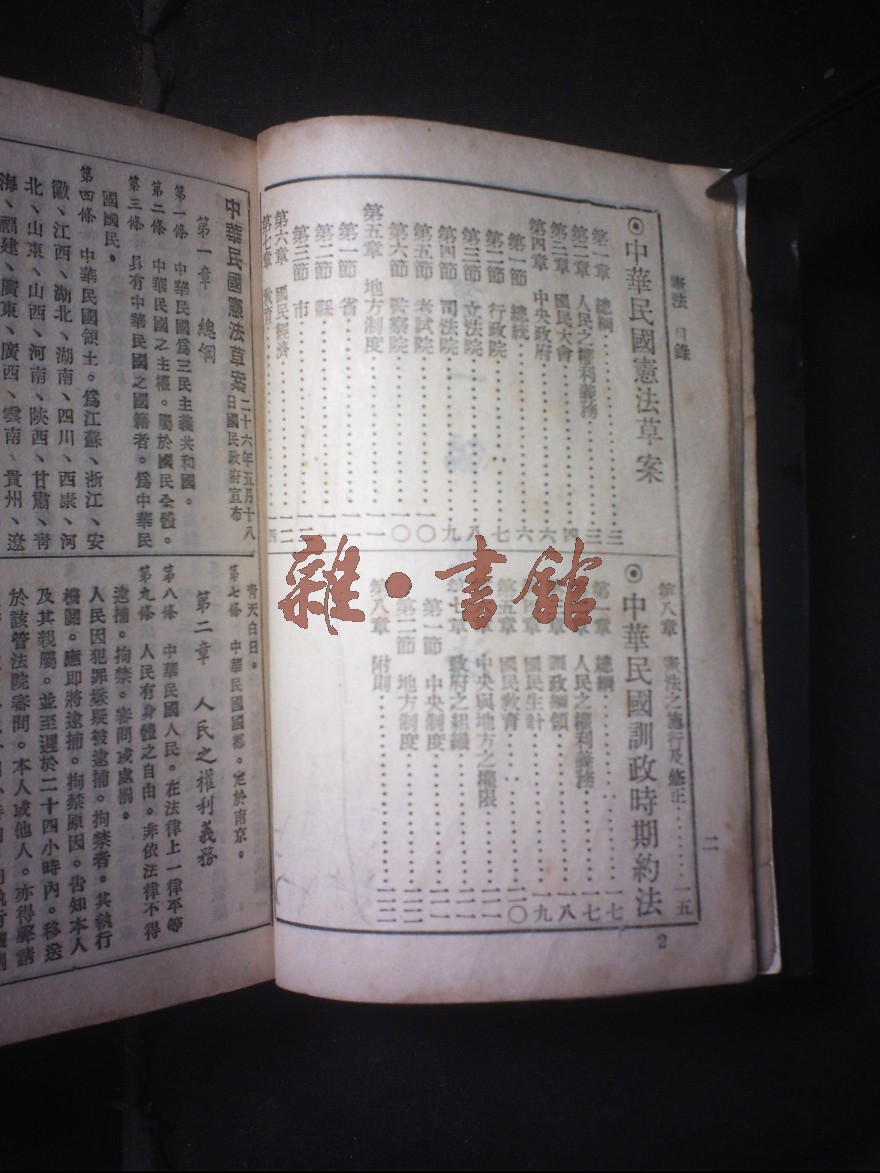 憲法 目錄
二
⊙中華民國憲法草案
第一章 總綱……三
第二章 人民之權利義務……三
第三章 國民大會……四
第四章 中央政府……六
第一節 總統……六
第二節 行政院……七
第三節 立法院……八
第四節 司法院……九
第五節 考試院……一〇
第六節 監察院……一〇
第五章 地方制度……一一
第一節 省……一一
第二節 縣……一一
第三節 市……一二
第六章 國民經濟……一二
第七章 教育……一四
第八章 憲法之施行及修正……一五
⊙中華民國訓政時期約法
第一章 總綱……一七
人民之權利義務……一七
訓政綱領……一八
國民生計……一九
國民教育……二〇
中央與地方之權限……二一
政府之組織……二一
第一節 中央制度……二一
第二節 地方制度……二二
第八章 附則……二三
2
雜·書館
中華民國憲法草案 二十六年五月十八日國民政府宣布
第一章 總綱
第一條 中華民國爲三民主義共和國。
第二條 中華民國之主權。屬於國民全體。
第三條 具有中華民國之國籍者。爲中華民
國國民。
第四條 中華民國領土。爲江蘇、浙江、安
徽、江西、湖北、湖南、四川、西康、河
北、山東、山西、河南、陝西、甘肅、青
海、福建、廣東、廣西、雲南、貴州、遼
青天白日。
第七條 中華民國國都。定於南京。
第二章 人民之權利義務
第八條 中華民國人民。在法律上一律平等
第九條 人民有身體之自由。非依法律不得
逮捕。拘禁。審問或處罰。
人民因犯罪嫌疑被逮捕。拘禁者。其執行
機關。應即將逮捕。拘禁原因。告知本人
及其親屬。並至遲於二十四小時內。移送
於該管法院審問。本人或他人。亦得聲請